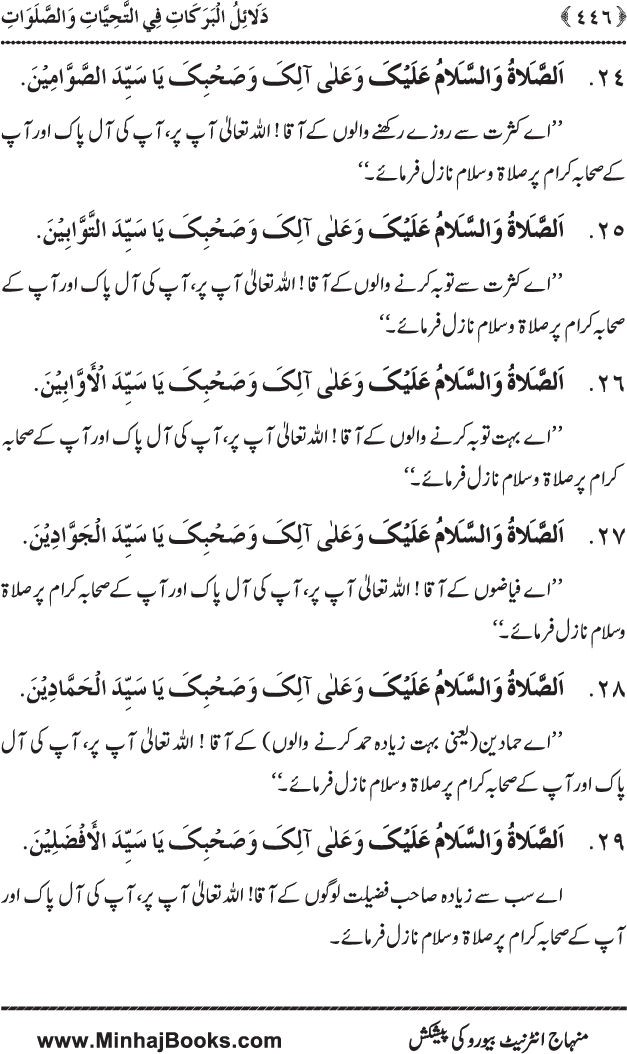 ﴿٤٤٦﴾ دَلَائِلُ الْبَرَکَاتِ فِي التَّحِيَّاتِ وَالصَّلَوَاتِ
٢٤. اَلصَّلَاةُ وَالسَّلَامُ عَلَيْکَ وَعَلٰی آلِکَ وَصَحْبِکَ يَا سَيِّدَ الصَّوَّامِيْنَ.
’’اے کثرت سے روزے رکھنے والوں کے آقا! اللہ تعالیٰ آپ پر، آپ کی آل پاک اور آپ
کے صحابہ کرام پر صلاۃ وسلام نازل فرمائے۔‘‘
٢٥. اَلصَّلَاةُ وَالسَّلَامُ عَلَيْکَ وَعَلٰی آلِکَ وَصَحْبِکَ يَا سَيِّدَ التَّوَّابِيْنَ.
’’اے کثرت سے توبہ کرنے والوں کے آقا! اللہ تعالیٰ آپ پر، آپ کی آل پاک اور آپ کے
صحابہ کرام پر صلاۃ وسلام نازل فرمائے۔‘‘
٢٦. اَلصَّلَاةُ وَالسَّلَامُ عَلَيْکَ وَعَلٰی آلِکَ وَصَحْبِکَ يَا سَيِّدَ الْأَوَّابِيْنَ.
’’اے بہت توبہ کرنے والوں کے آقا! اللہ تعالیٰ آپ پر، آپ کی آل پاک اور آپ کے صحابہ
کرام پر صلاۃ وسلام نازل فرمائے۔‘‘
٢٧. اَلصَّلَاةُ وَالسَّلَامُ عَلَيْکَ وَعَلٰی آلِکَ وَصَحْبِکَ يَا سَيِّدَ الْجَوَّادِيْنَ.
’’اے فیاضوں کے آقا! اللہ تعالیٰ آپ پر، آپ کی آل پاک اور آپ کے صحابہ کرام پر صلاۃ
وسلام نازل فرمائے۔‘‘
٢٨. اَلصَّلَاةُ وَالسَّلَامُ عَلَيْکَ وَعَلٰی آلِکَ وَصَحْبِکَ يَا سَيِّدَ الْحَمَّادِيْنَ.
’’اے حمادین (یعنی بہت زیادہ حمد کرنے والوں) کے آقا! اللہ تعالیٰ آپ پر، آپ کی آل
پاک اور آپ کے صحابہ کرام پر صلاۃ وسلام نازل فرمائے۔‘‘
٢٩. اَلصَّلَاةُ وَالسَّلَامُ عَلَيْکَ وَعَلٰی آلِکَ وَصَحْبِکَ يَا سَيِّدَ الْأَفْضَلِيْنَ.
اے سب سے زیادہ صاحب فضیلت لوگوں کے آقا! اللہ تعالیٰ آپ پر، آپ کی آل پاک اور
آپ کے صحابہ کرام پر صلاۃ وسلام نازل فرمائے۔
منہاج انٹرنیٹ بیورو کی پیشکش www.MinhajBooks.com